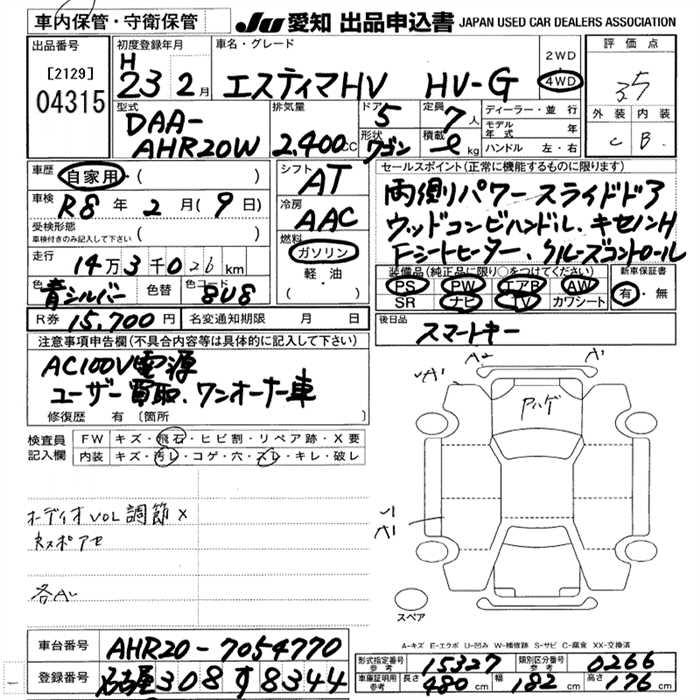 車内保管・守衛保管 JU 愛知 出品申込書 JAPAN USED CAR DEALERS ASSOCIATION
出品番号 初度登録年月 車名・グレード 2WD 評価点
[2129] H 23 2月 エスティマHV HV-G 4WD 3.5
04315
型式 排気量 ドア 定員 ディーラー・並行 外装 内装
DAA- 5 7人 モデル年式 年 C B
AHR20W 2,400cc 形状 ワゴン 積載 kg ハンドル 左・右
車歴 自家用・( ) シフト セールスポイント(正常に機能するものに限ります)
車検 R8年 2月(9日) AT 両側パワースライドドア
受検形態 冷房 ウッドコンビハンドル.キセノンH
車検付きのみ記入して下さい ( ) AAC Fシートヒーター.クルーズコントロール
走行 14万3千026km 燃料 ガソリン 装備品(純正品に限り○をつけてください) 新車保証書
色 青シルバー 色替 色コード 8V8 軽・油 PS PW エアB AW 有・無
( ) SR ナビ TV カワシート
R券 15,700円 名変通知期限 月 日 後日品 スマートキー
注意事項申告欄(不具合内容等は具体的に記入して下さい)
AC100V電源
ユーザー買取.ワンオーナー車
修復歴 有〔箇所
検査員 FW キズ・飛石・ヒビ割・リペア跡・X要
記入欄 内装 キズ・汚レ・コゲ・穴・スレ・キレ・破レ
A2 A1
A1 Pハゲ
オーディオVOL調節×
A1
各AU
スペア
A-キズ E-エクボ U-凹み W-補修跡 S-サビ C-腐食 XX-交換済
車台番号 AHR20-7054770 形式指定番号 参考 15327 類別区分番号 参考 0266
登録番号 名古屋308す8344 車庫証明用 参考 長さ 480cm 幅 182cm 高さ 176cm